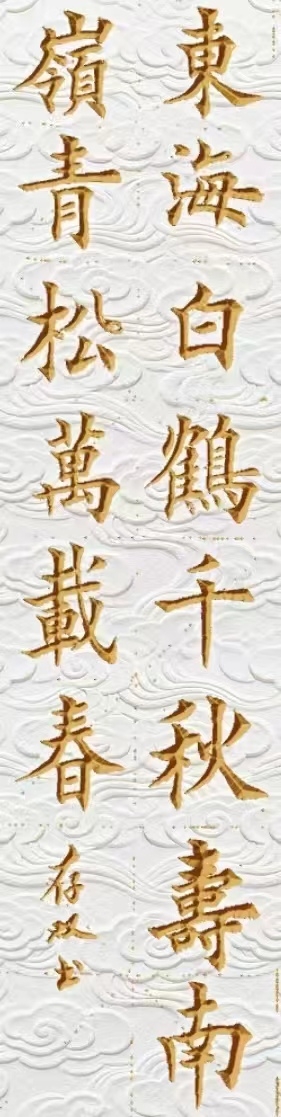 東海白鶴千秋壽南
嶺青松萬載春
存双书